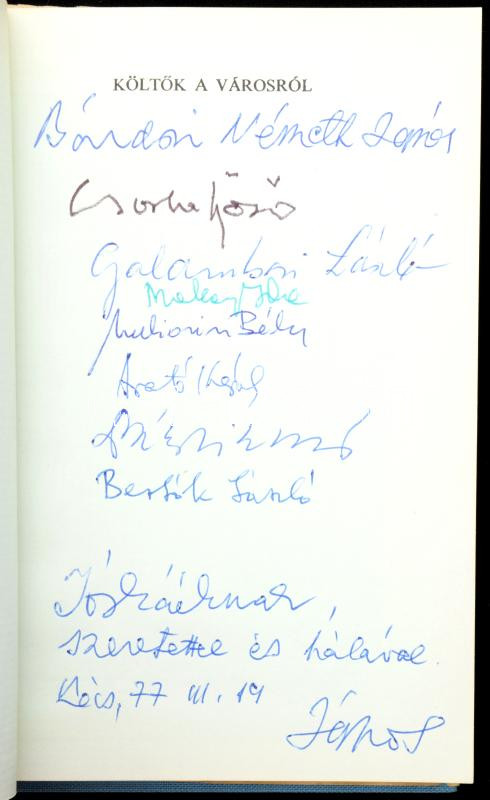 KÖLTŐK A VÁROSRÓL
Bárdosi Németh János
Csorba Győző
Galambosi László
Makay Ida
Bély
Arató Károly
Bertók László
Jóskáéknak,
szeretettel és hálával
Pécs, 77 III. 19
János